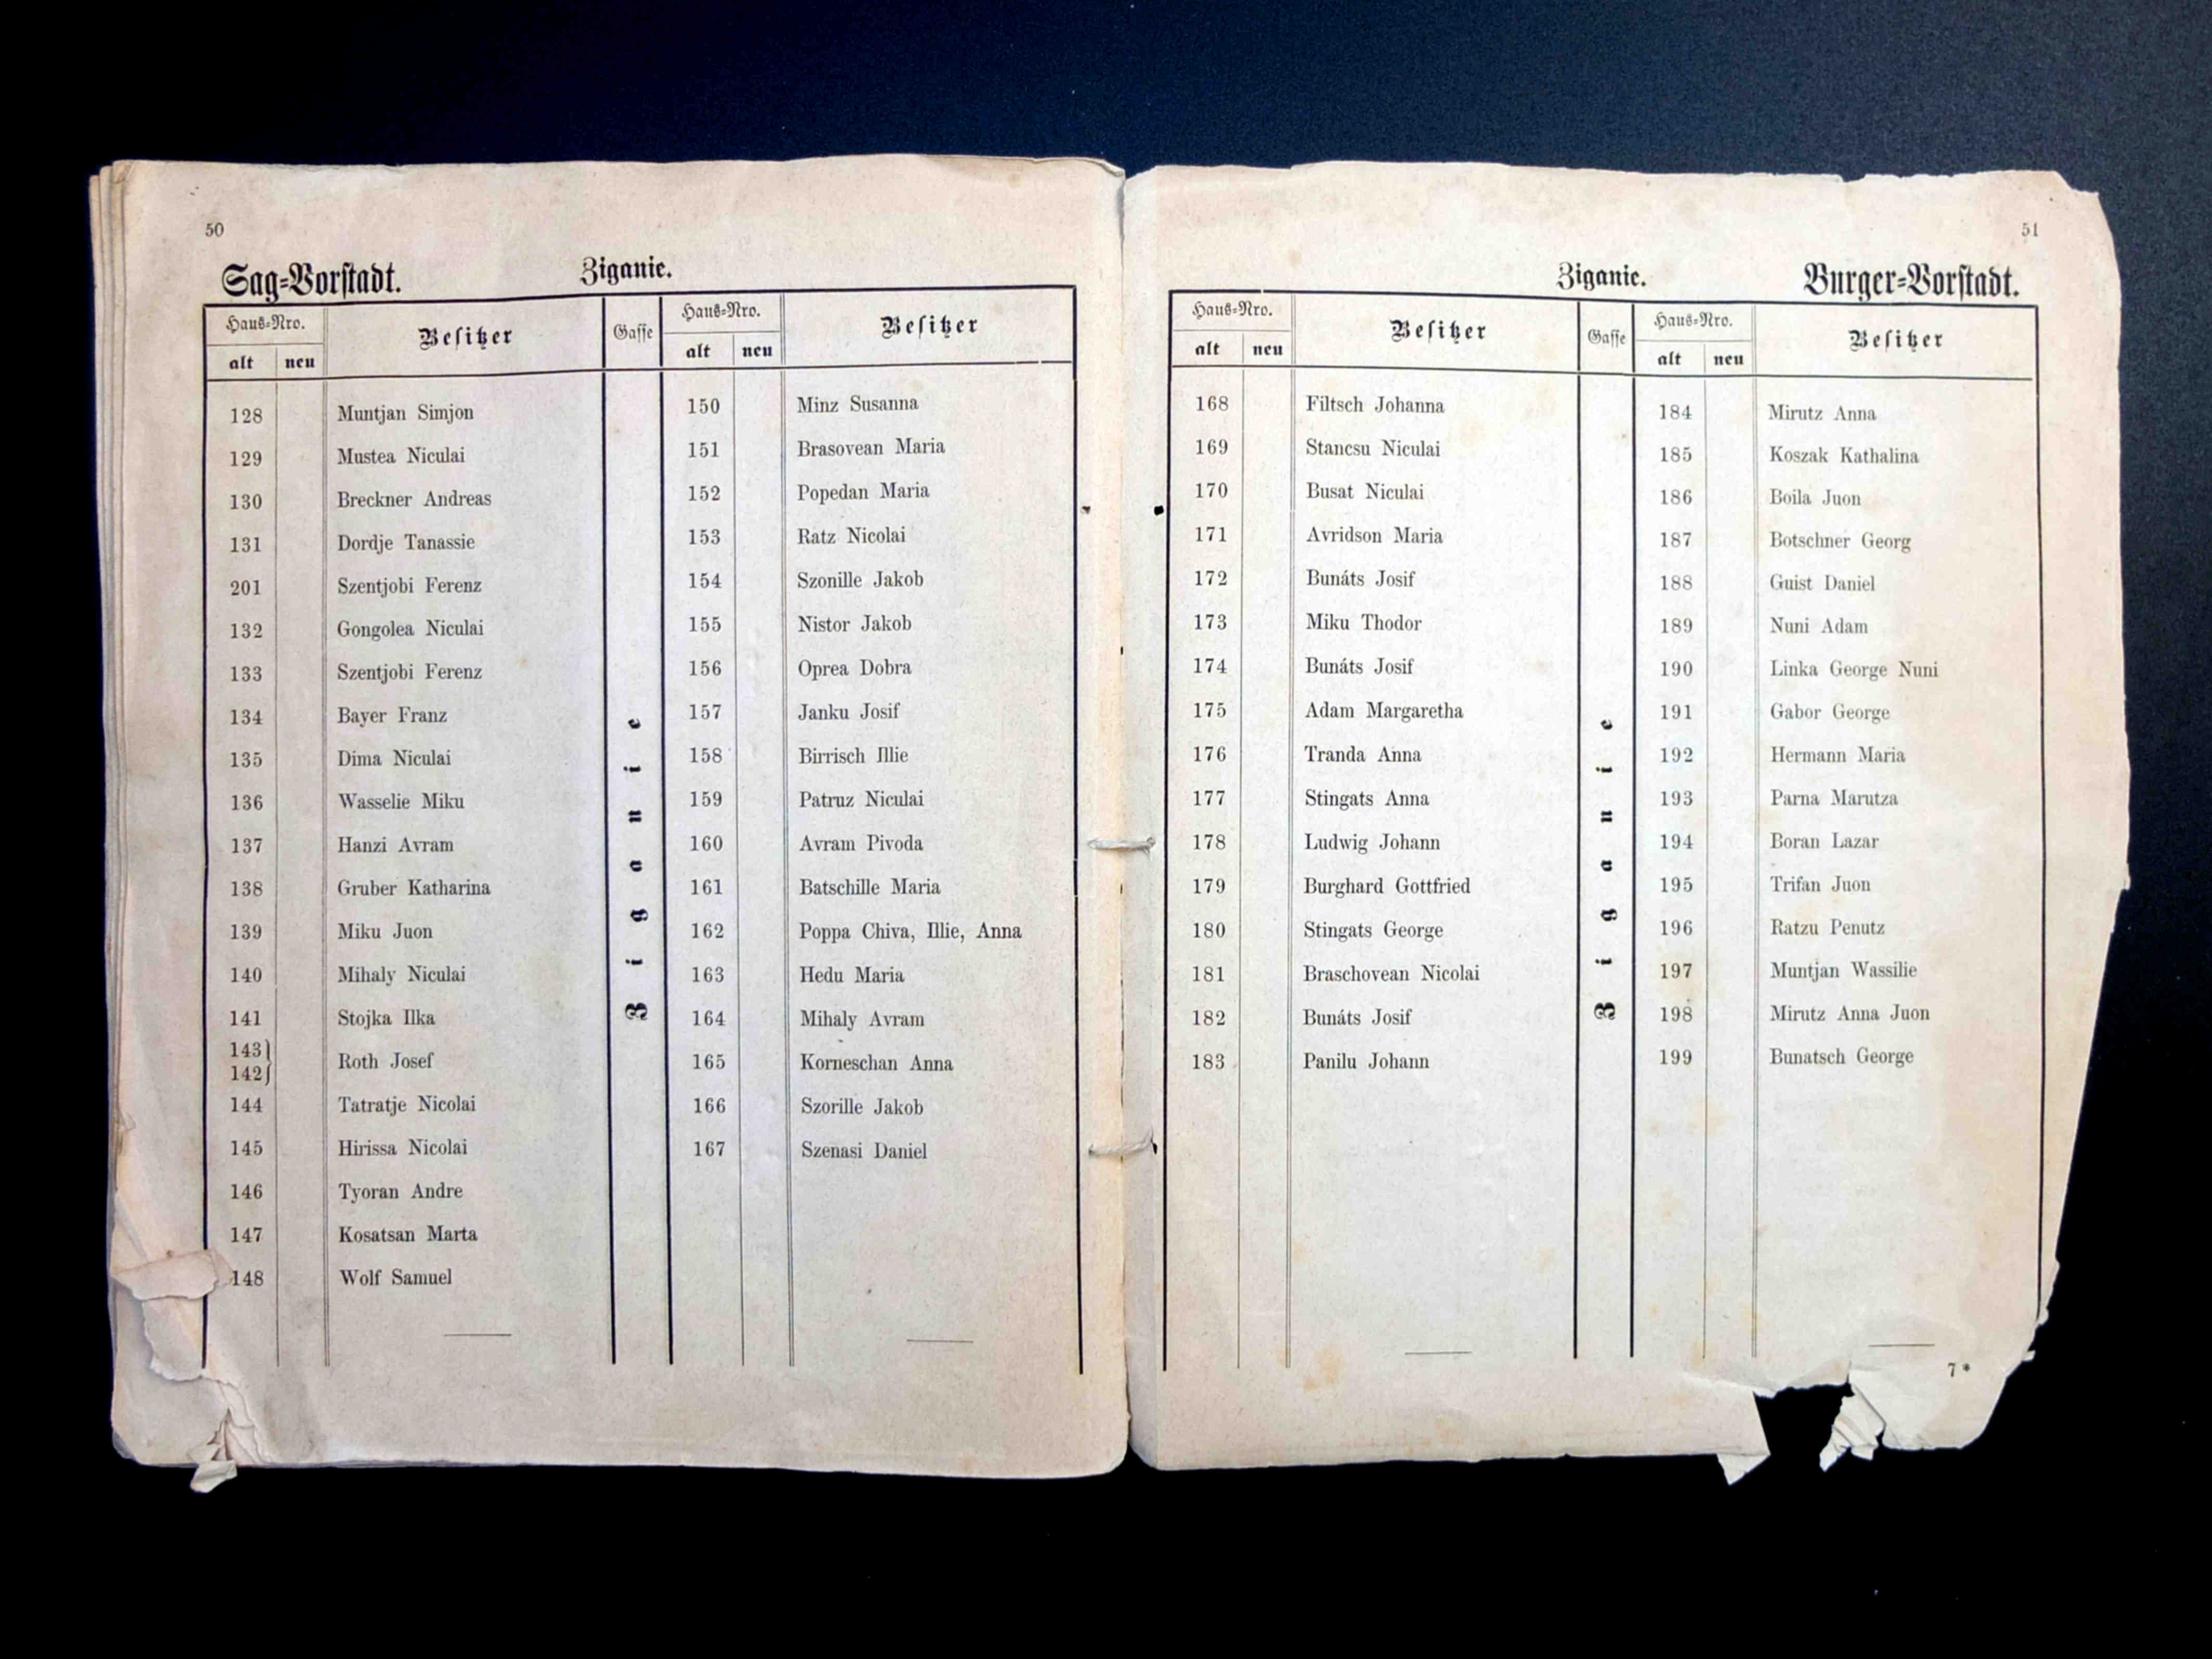 50
Sag=Vorstadt. Ziganie.
Haus=Nro. Besitzer Gasse Haus=Nro. Besitzer
alt neu alt neu
128 Muntjan Simjon 150 Minz Susanna
129 Mustea Niculai 151 Brasovean Maria
130 Breckner Andreas 152 Popedan Maria
131 Dordje Tanassie 153 Ratz Nicolai
201 Szentjobi Ferenz 154 Szonille Jakob
132 Gongolea Niculai 155 Nistor Jakob
133 Szentjobi Ferenz 156 Oprea Dobra
134 Bayer Franz 157 Janku Josif
135 Dima Niculai 158 Birrisch Illie
136 Wasselie Miku 159 Patruz Niculai
137 Hanzi Avram 160 Avram Pivoda
138 Gruber Katharina 161 Batschille Maria
139 Miku Juon 162 Poppa Chiva, Illie, Anna
140 Mihaly Niculai 163 Hedu Maria
141 Stojka Ilka 164 Mihaly Avram
143}
142} Roth Josef 165 Korneschan Anna
144 Tatratje Nicolai 166 Szorille Jakob
145 Hirissa Nicolai 167 Szenasi Daniel
146 Tyoran Andre
147 Kosatsan Marta
148 Wolf Samuel
Ziganie
51
Ziganie. Burger=Vorstadt.
Haus=Nro. Besitzer Gasse Haus=Nro. Besitzer
alt neu alt neu
168 Filtsch Johanna 184 Mirutz Anna
169 Stancsu Niculai 185 Koszak Kathalina
170 Busat Niculai 186 Boila Juon
171 Avridson Maria 187 Botschner Georg
172 Bunáts Josif 188 Guist Daniel
173 Miku Thodor 189 Nuni Adam
174 Bunáts Josif 190 Linka George Nuni
175 Adam Margaretha 191 Gabor George
176 Tranda Anna 192 Hermann Maria
177 Stingats Anna 193 Parna Marutza
178 Ludwig Johann 194 Boran Lazar
179 Burghard Gottfried 195 Trifan Juon
180 Stingats George 196 Ratzu Penutz
181 Braschovean Nicolai 197 Muntjan Wassilie
182 Bunáts Josif 198 Mirutz Anna Juon
183 Panilu Johann 199 Bunatsch George
Ziganie
7*